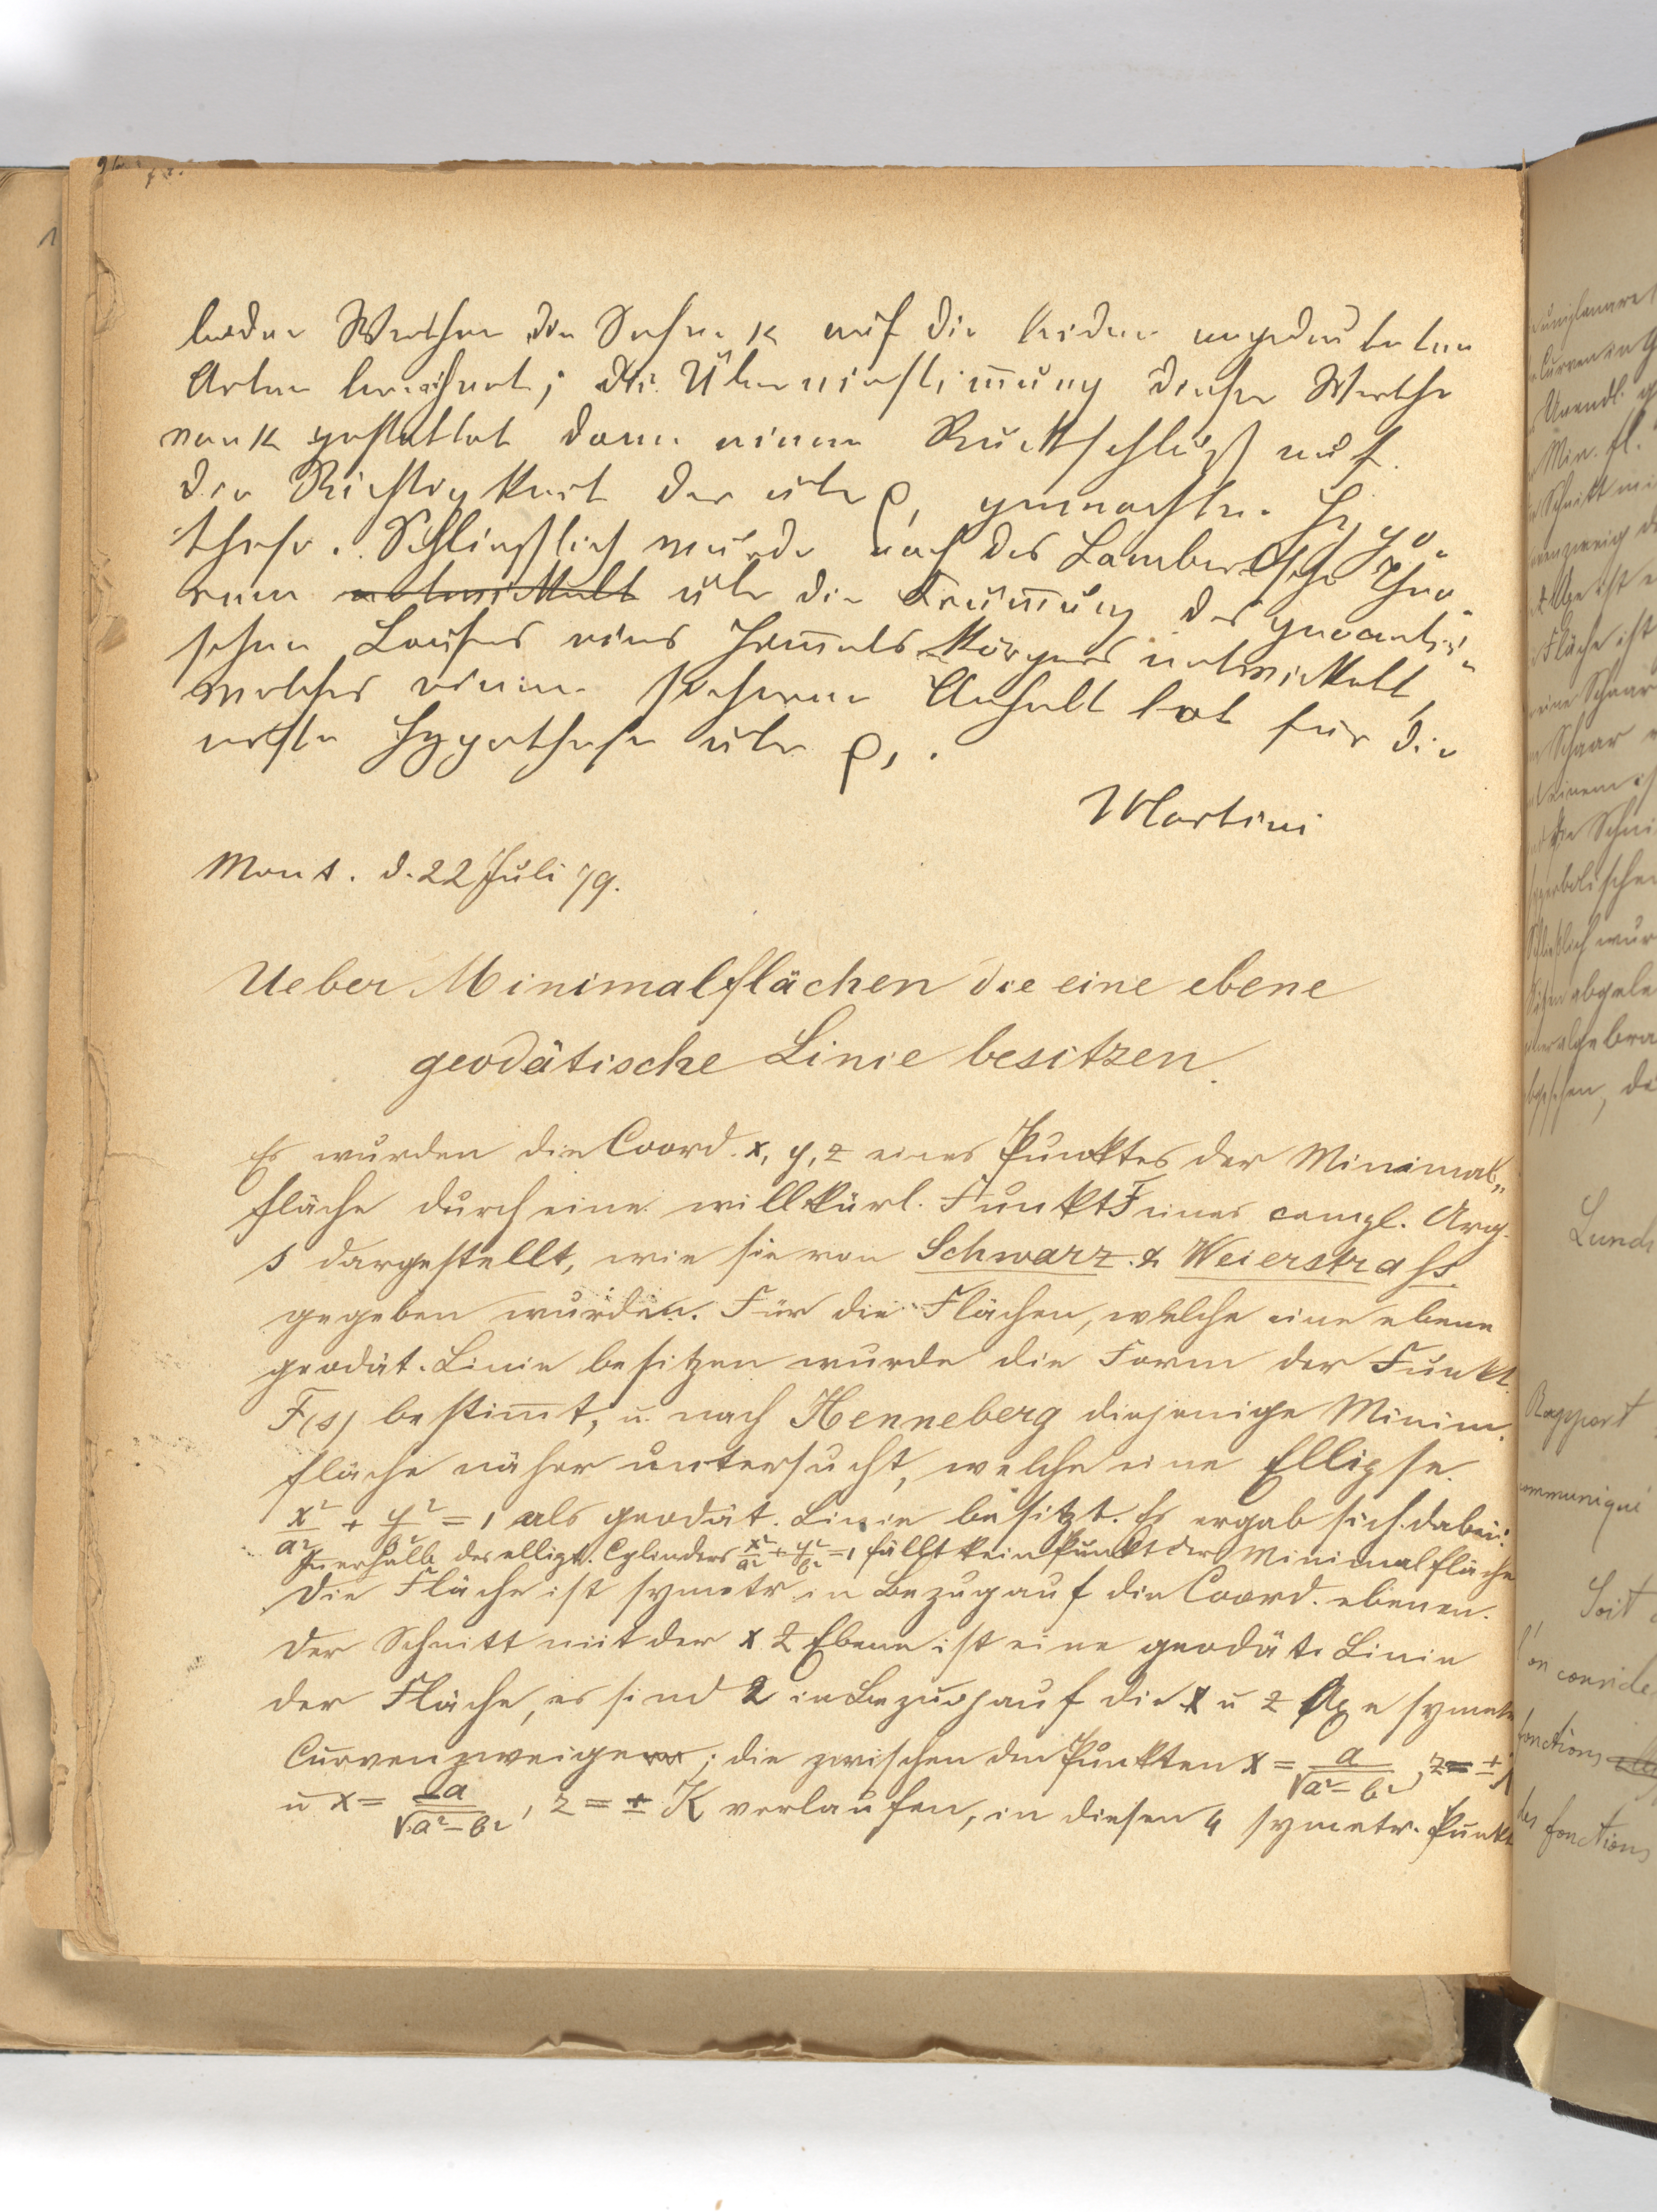 beider Werthe die Sehne k auf die beiden angedeuteten
Arten berechnet; die Übereinstimmung dieser Werthe
von k gestattet dann einen Rückschluß auf
die Richtigkeit der über ρ, gemachten Hypo-
these. Schließlich wurde noch das Lambertsche Theo-
rem entwickelt über die Krümmung des geocentri-
schen Laufes eines Him̅elskörpers entwickelt,
welches einen sicheren Anhalt bot für die
erste Hypothese über ρ, .
Martini
Mont. d. 22 Juli 79.
Ueber Minimalflächen die eine ebene
geodätische Linie besitzen.
Es wurden die Coord. x, y, z eines Punktes der Minimal„
fläche durch eine willkürl. Funkt F eines compl. Arg.
s dargestellt, wie sie von Schwarz & Weierstrass
gegeben wurden. Für die Flächen, welche eine ebene
geodät. Linie besitzen wurde die Form der Funkt.
F(s) bestim̅t, u. nach Henneberg diejenige Minim.
fläche näher untersucht, welche eine Ellipse
x²/a² + y²/b² = 1 als geodät. Linie besitzt. Es ergab sich dabei:
Innerhalb des ellipt. Cylinders x²/a² + y²/b² = 1 fällt kein Punkt der Minimalfläche
Die Fläche ist symetr. in Bezug auf die Coord. ebenen.
Der Schnitt mit der x z Ebene ist eine geodät. Linie
der Fläche, es sind 2 in Bezug auf die x u z Axe symetr
Curvenzweige ; die zwischen den Punkten x = a/√a²-b² , z = ±K
u x = -a/√a²-b² , z = ± K verlaufen, in diesen 4 symetr. Punkt